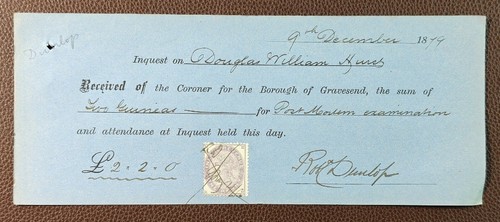 Dunlop
9th December 1879
Inquest on Douglas William Hurst
Received of the Coroner for the Borough of Gravesend, the sum of
Two Guineas for Post Mortem examination
and attendance at Inquest held this day.
£2-2-0
Robt Dunlop